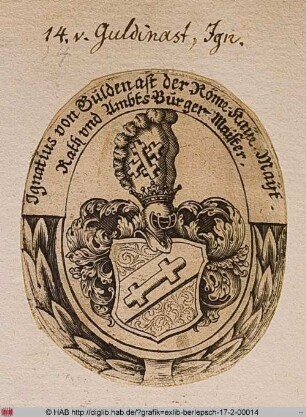 14. v. Guldinast, Ign.
Ignatius von Gülden ast der Röme. Kay. Mayt.
Rath vnd Ambts Bürger-Maister.
© HAB http://diglib.hab.de/?grafik=exlib-berlepsch-17-2-00014